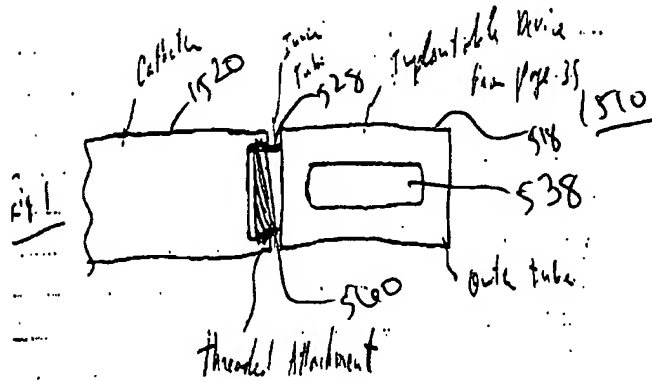 Catheter
1520
Inner
Tube
528
Implantable Device ...
from page 35
518
1510
538
Fig 1.
Outer tube
560
threaded Attachment